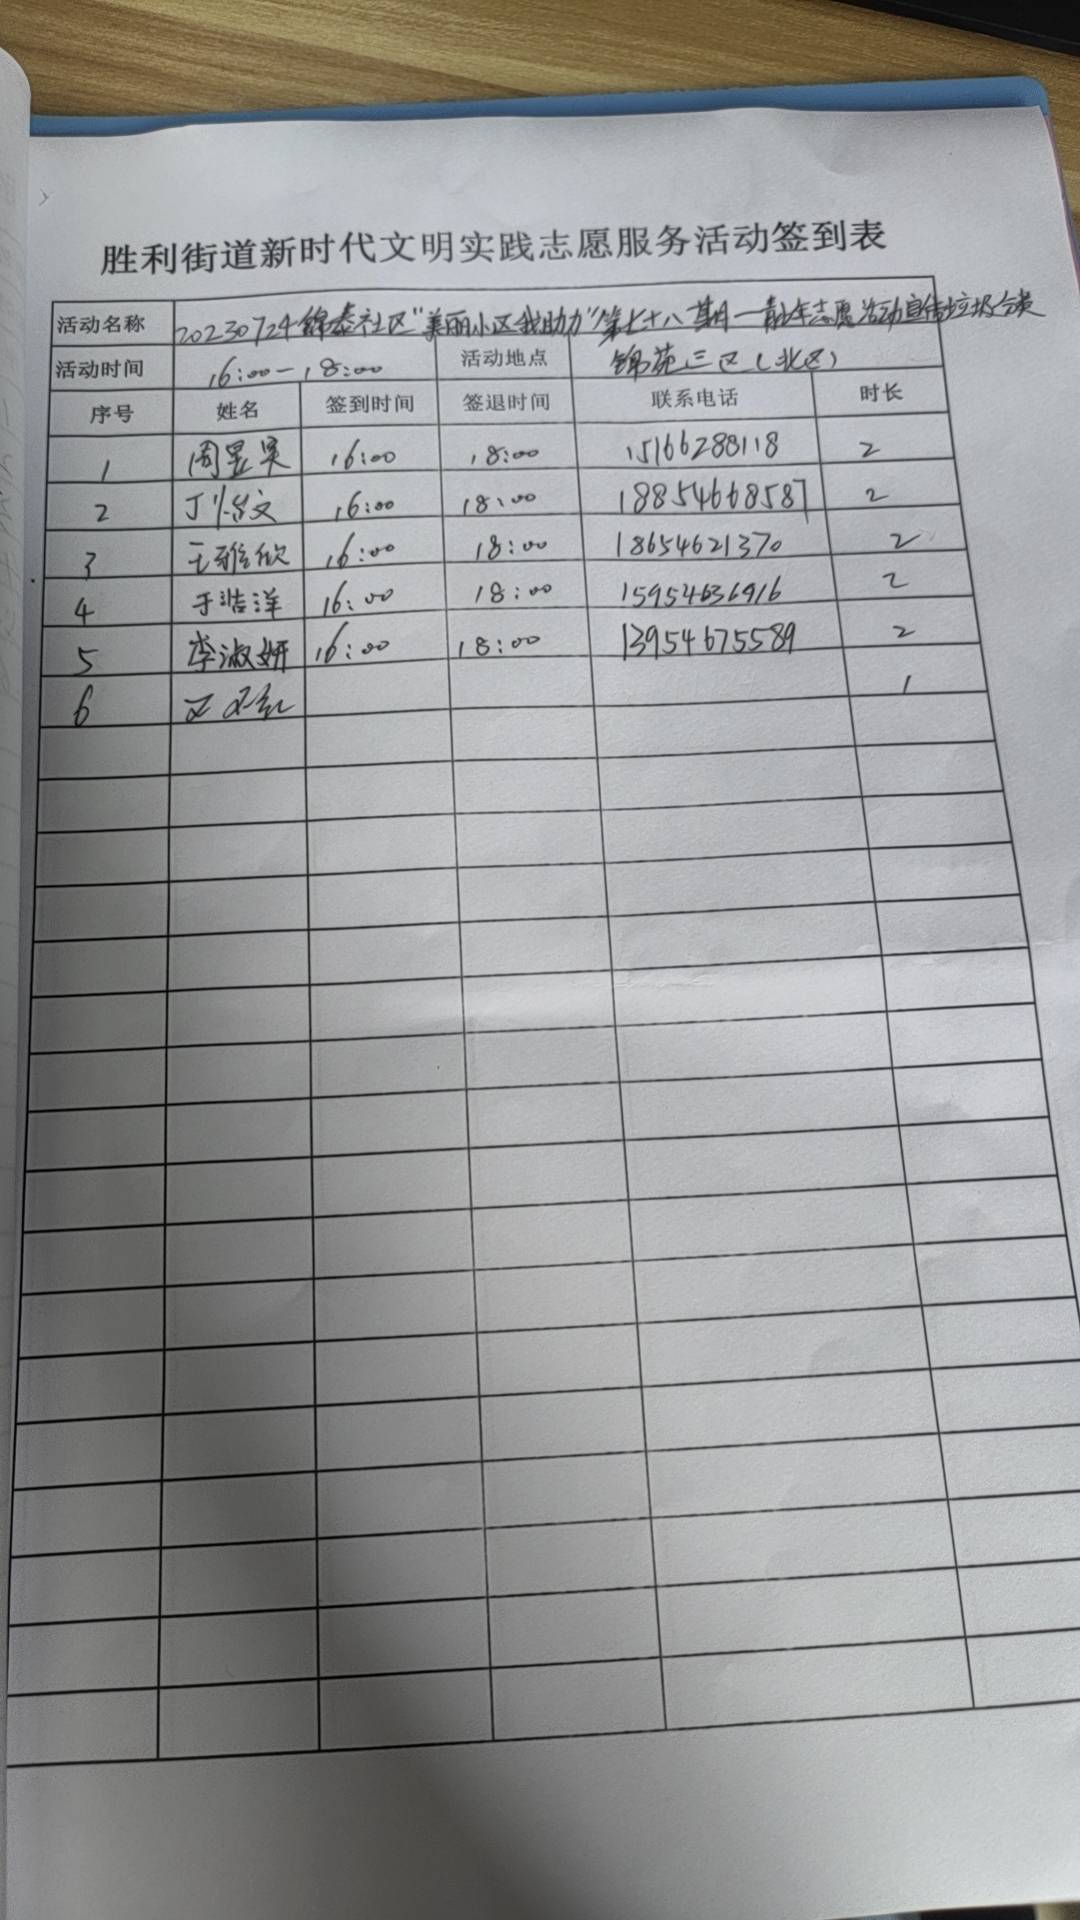 胜利街道新时代文明实践志愿服务活动签到表
活动名称 20230724锦泰社区"美丽小区我助力"第七十八期—青少年志愿活动宣传垃圾分类
活动时间 16:00-18:00 活动地点 锦苑三区(北区)
序号 姓名 签到时间 签退时间 联系电话 时长
1 周昱昊 16:00 18:00 15166288118 2
2 丁怡文 16:00 18:00 18854668587 2
3 王雅欣 16:00 18:00 18654621370 2
4 于浩洋 16:00 18:00 15954636916 2
5 李淑妍 16:00 18:00 13954675589 2
6 1